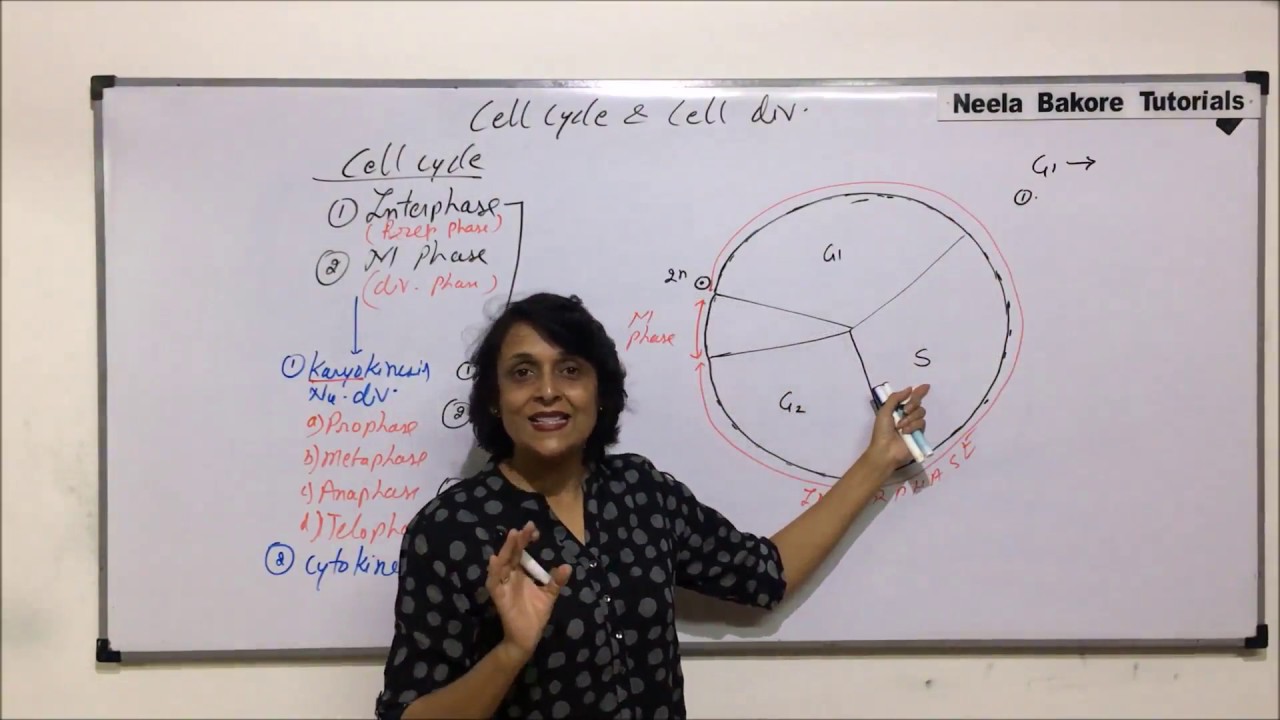 Cell Cycle & Cell div.
Neela Bakore Tutorials
Cell cycle
① Interphase
(Prep phase)
② M Phase
(div. phase)
① Karyokinesis
Nu. div.
a) Prophase
b) Metaphase
c) Anaphase
d) Teloph
② Cytokine
①
②
G1 →
①.
G1
2n
M phase
S
G2